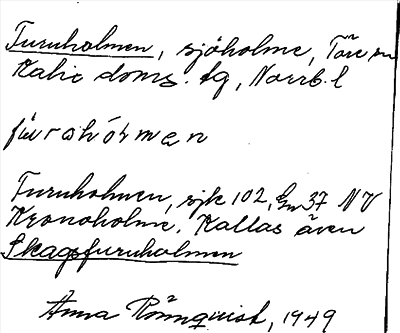 Furuholmen, sjöholme, Töre sn
Kalix doms. tg, Norrb. l
fúrohólmen
Furuholmen, sjk 102, Gm 37 NV
Kronoholme. Kallas även
Skagsfuruholmen
Anna Rönnqvist, 1949